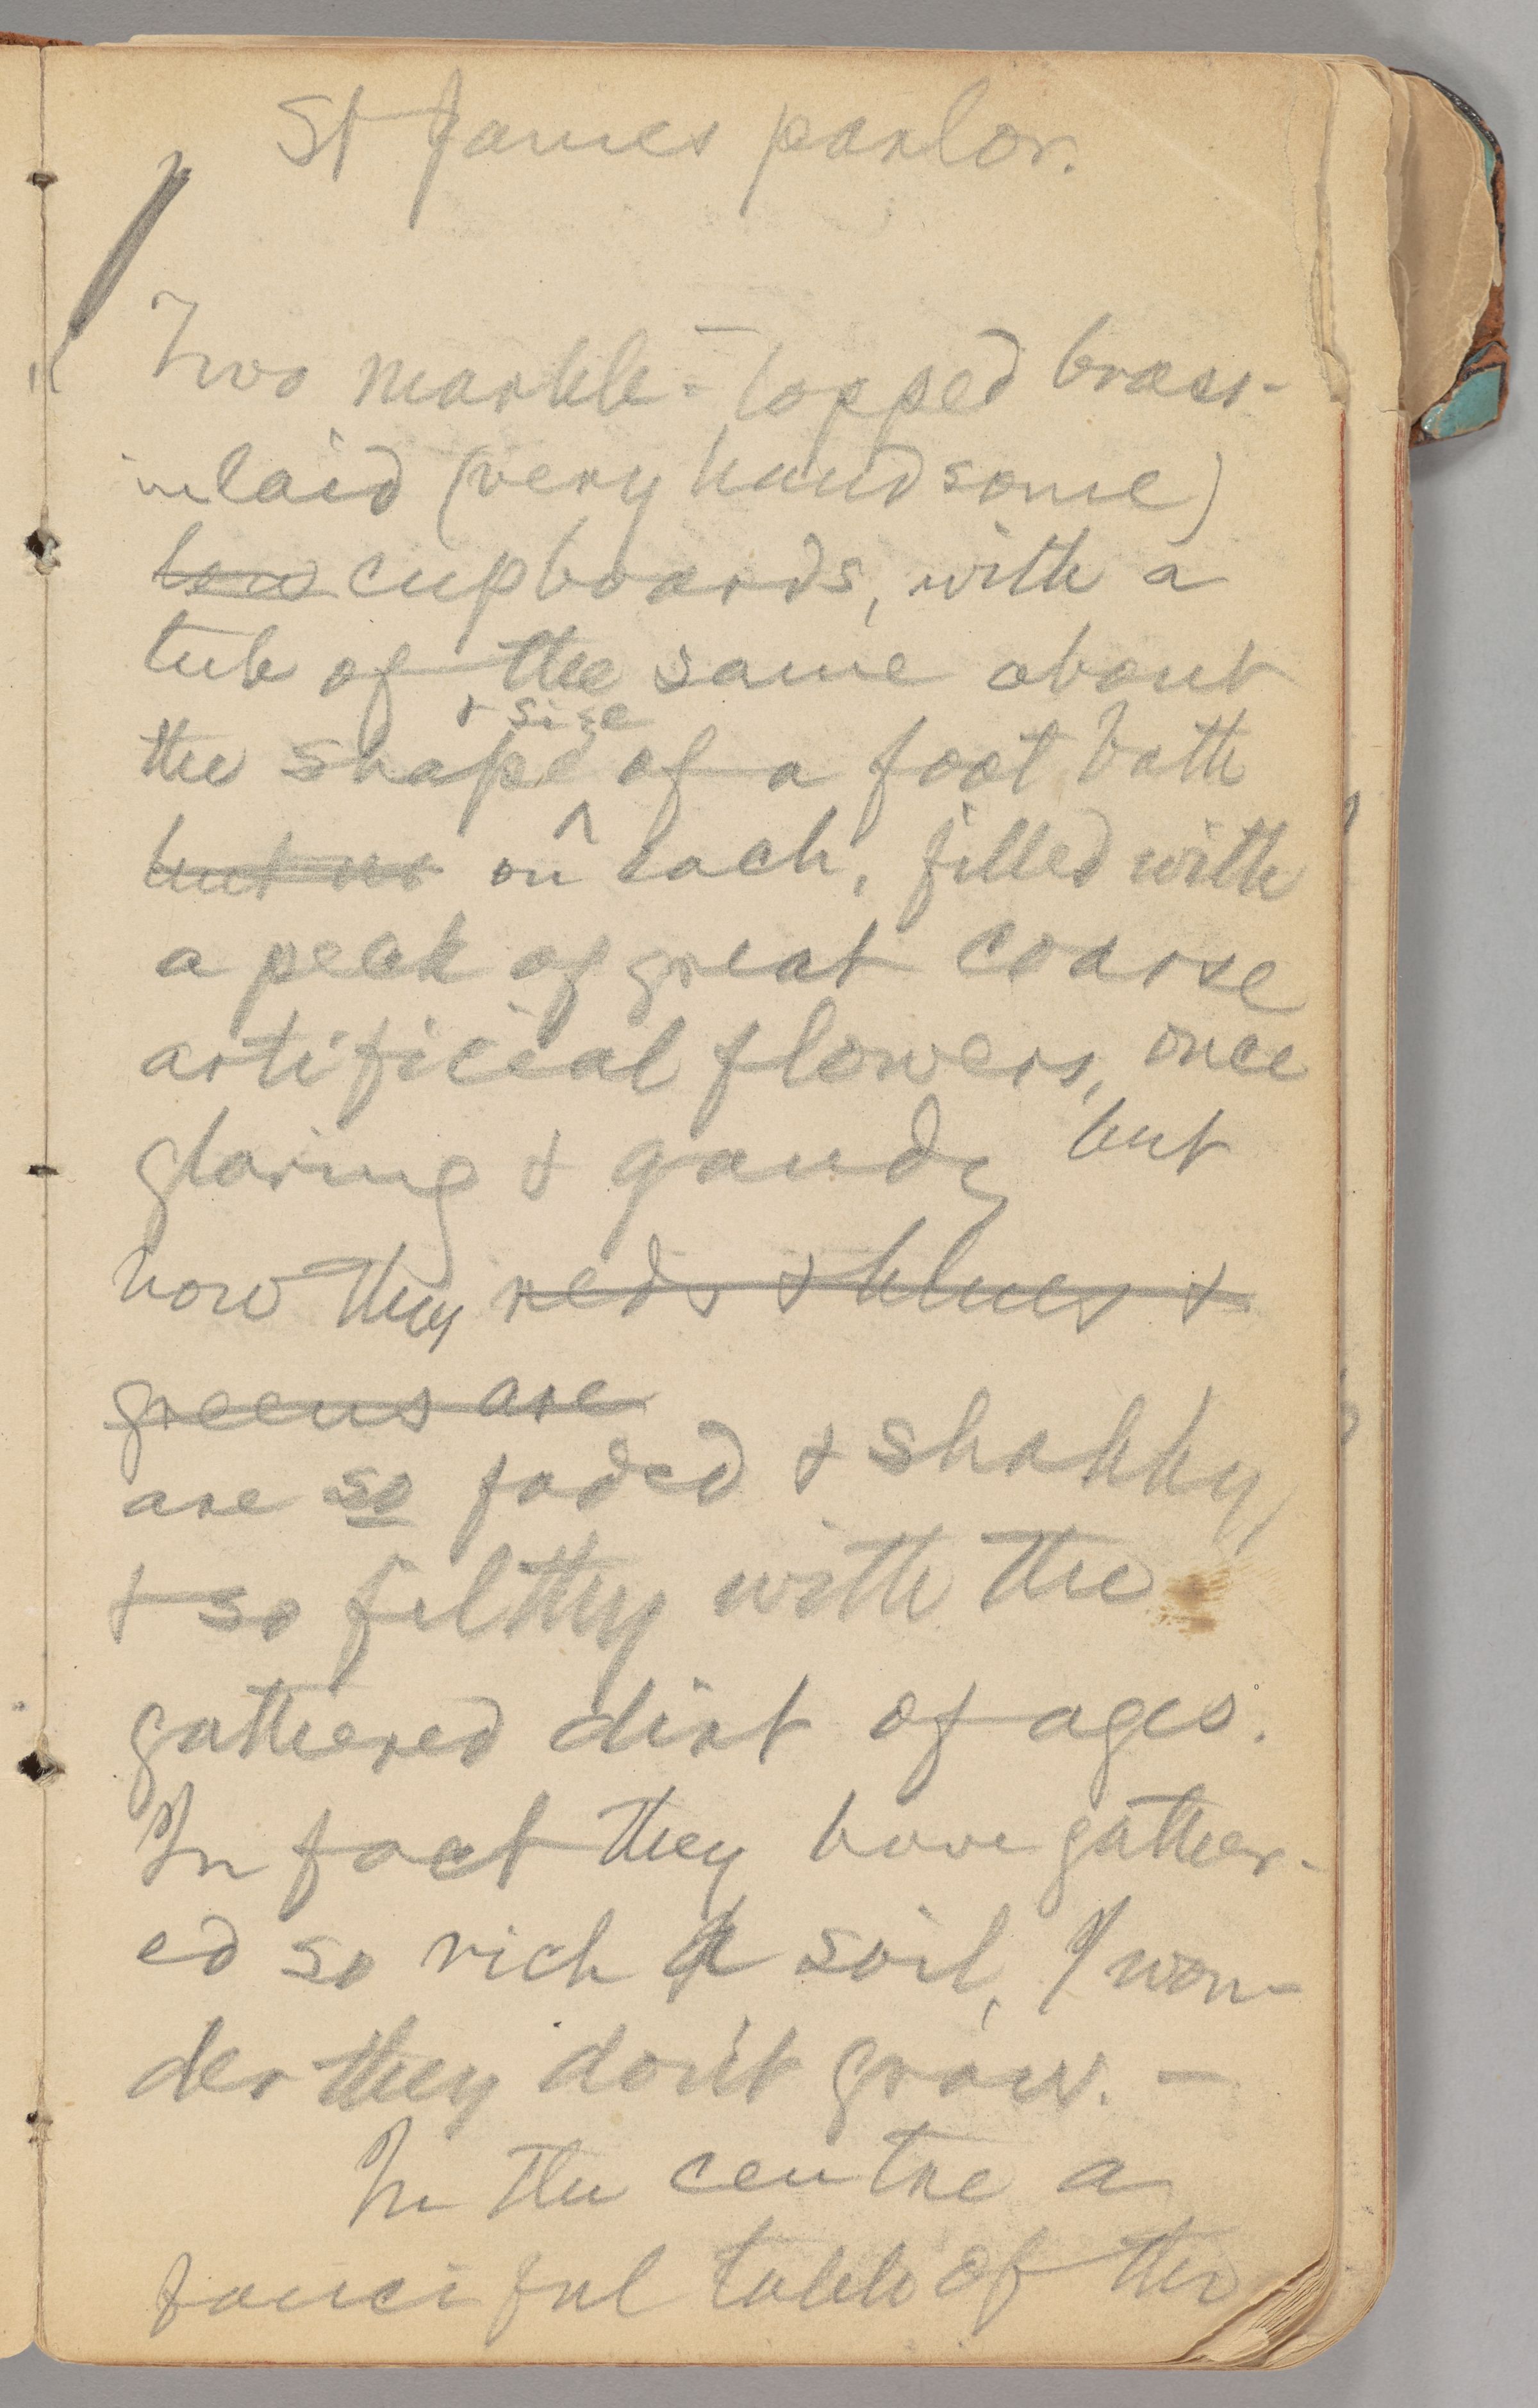 St James parlor.
Two marble-topped brass-
inlaid (very handsome)
low cupboards, with a
tub of the same about
& size
the shape of a foot bath
but no on each, filled with
a peck of great coarse
artificial flowers, once
glaring & gaudy but
now they reds & blues &
greens are
are so faded & shabby,
& so filthy with the
gathered dirt of ages.
In fact they have gather-
ed so rich a soil, I won-
der they don't grow. —
In the centre a
fanciful table of the